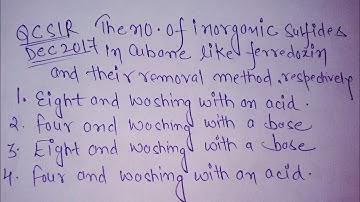 QCSIR The no. of inorganic sulfides
Dec 2017 in cubane like ferredoxin
and their removal method, respectively
1. Eight and washing with an acid.
2. four and washing with a base
3. Eight and washing with a base
4. four and washing with an acid.